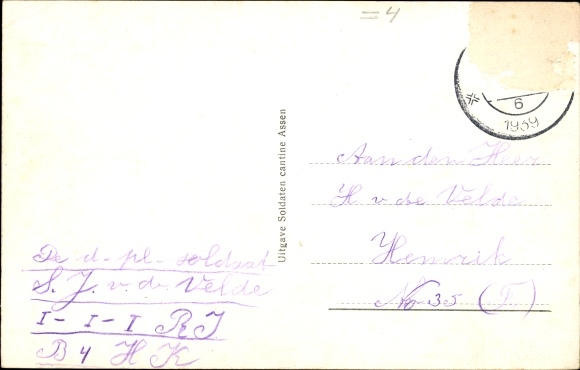 =4
6
1939
Uitgave Soldaten cantine Assen
Aan den Heer
H v de Velde
Hemrik
No 35 (F)
De d-pl-soldaat
S. J. v. d. Velde
I-I-I RI
B 4 H K